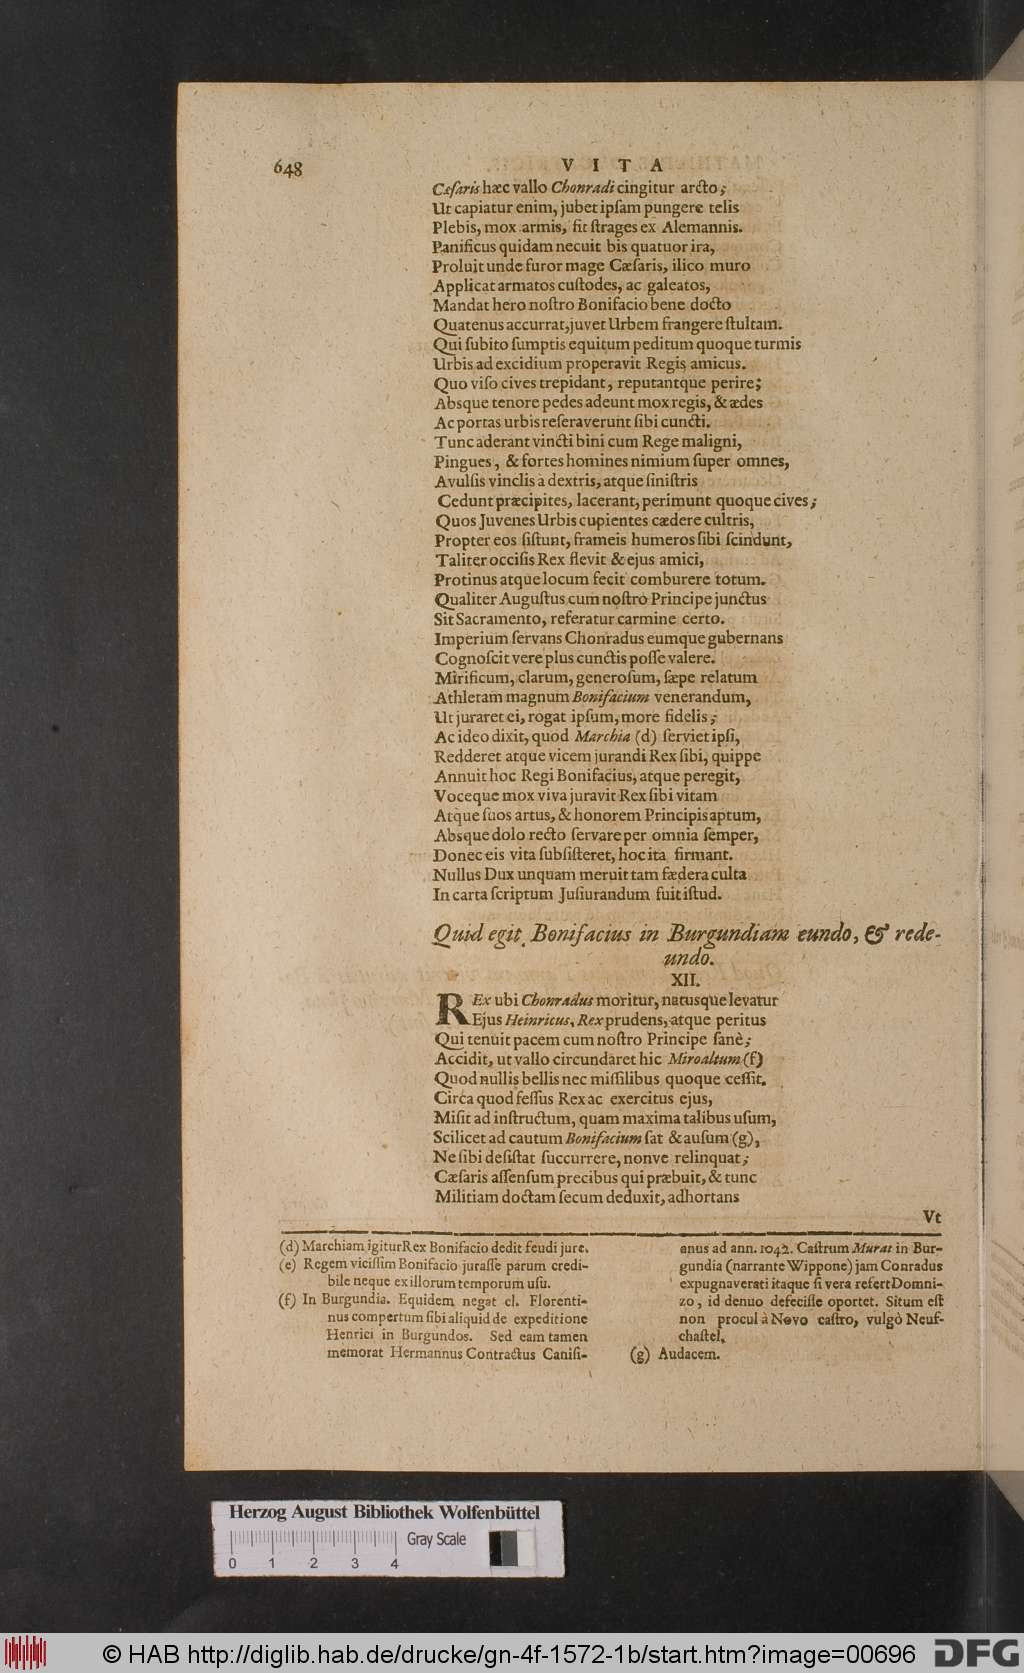 648
V I T A
Cæſaris hæc vallo Chonradi cingitur arcto;
Ut capiatur enim, jubet ipſam pungere telis
Plebis, mox armis, fit ſtrages ex Alemannis.
Panificus quidam necuit bis quatuor ira,
Proluit unde furor mage Cæſaris, ilico muro
Applicat armatos cuſtodes, ac galeatos,
Mandat hero noſtro Bonifacio bene docto
Quatenus accurrat, juvet Urbem frangere ſtultam.
Qui ſubito ſumptis equitum peditum quoque turmis
Urbis ad excidium properavit Regis amicus.
Quo viſo cives trepidant, reputantque perire;
Absque tenore pedes adeunt mox regis, & ædes
Ac portas urbis reſeraverunt ſibi cuncti.
Tunc aderant vincti bini cum Rege maligni,
Pingues, & fortes homines nimium ſuper omnes,
Avulſis vinclis a dextris, atque ſiniſtris
Cedunt præcipites, lacerant, perimunt quoque cives;
Quos Juvenes Urbis cupientes cædere cultris,
Propter eos ſiſtunt, frameis humeros ſibi ſcindunt,
Taliter occiſis Rex flevit & ejus amici,
Protinus atque locum fecit comburere totum.
Qualiter Auguſtus cum noſtro Principe junctus
Sit Sacramento, referatur carmine certo.
Imperium ſervans Chonradus eumque gubernans
Cognoſcit vere plus cunctis poſſe valere.
Mirificum, clarum, generoſum, ſæpe relatum
Athletam magnum Bonifacium venerandum,
Ut juraret ei, rogat ipſum, more fidelis;
Ac ideo dixit, quod Marchia (d) ſerviet ipſi,
Redderet atque vicem jurandi Rex ſibi, quippe
Annuit hoc Regi Bonifacius, atque peregit,
Voceque mox viva juravit Rex ſibi vitam
Atque ſuos artus, & honorem Principis aptum,
Absque dolo recto ſervare per omnia ſemper,
Donec eis vita ſubſiſteret, hoc ita firmant.
Nullus Dux unquam meruit tam fædera culta
In carta ſcriptum Juſiurandum fuit iſtud.
Quid egit Bonifacius in Burgundiam eundo, & rede-
undo.
XII.
REx ubi Chonradus moritur, natusque levatur
Ejus Heinricus, Rex prudens, atque peritus
Qui tenuit pacem cum noſtro Principe ſanè;
Accidit, ut vallo circundaret hic Miroaltum (f)
Quod nullis bellis nec miſſilibus quoque ceſſit.
Circa quod feſſus Rex ac exercitus ejus,
Miſit ad inſtructum, quam maxima talibus uſum,
Scilicet ad cautum Bonifacium ſat & auſum (g),
Ne ſibi deſiſtat ſuccurrere, nonve relinquat;
Cæſaris aſſenſum precibus qui præbuit, & tunc
Militiam doctam ſecum deduxit, adhortans
Vt
(d) Marchiam igitur Rex Bonifacio dedit feudi jure.
(e) Regem viciſſim Bonifacio juraſſe parum credi-
bile neque ex illorum temporum uſu.
(f) In Burgundia. Equidem negat cl. Florenti-
nus compertum ſibi aliquid de expeditione
Henrici in Burgundos. Sed eam tamen
memorat Hermannus Contractus Caniſi-
anus ad ann. 1042. Caſtrum Murat in Bur-
gundia (narrante Wippone) jam Conradus
expugnaverat; itaque ſi vera refert Domni-
zo, id denuo defeciſſe oportet. Situm eſt
non procul à Novo caſtro, vulgò Neuf-
chaſtel.
(g) Audacem.
Herzog August Bibliothek Wolfenbüttel
Gray Scale
0 1 2 3 4
© HAB http://diglib.hab.de/drucke/gn-4f-1572-1b/start.htm?image=00696
DFG